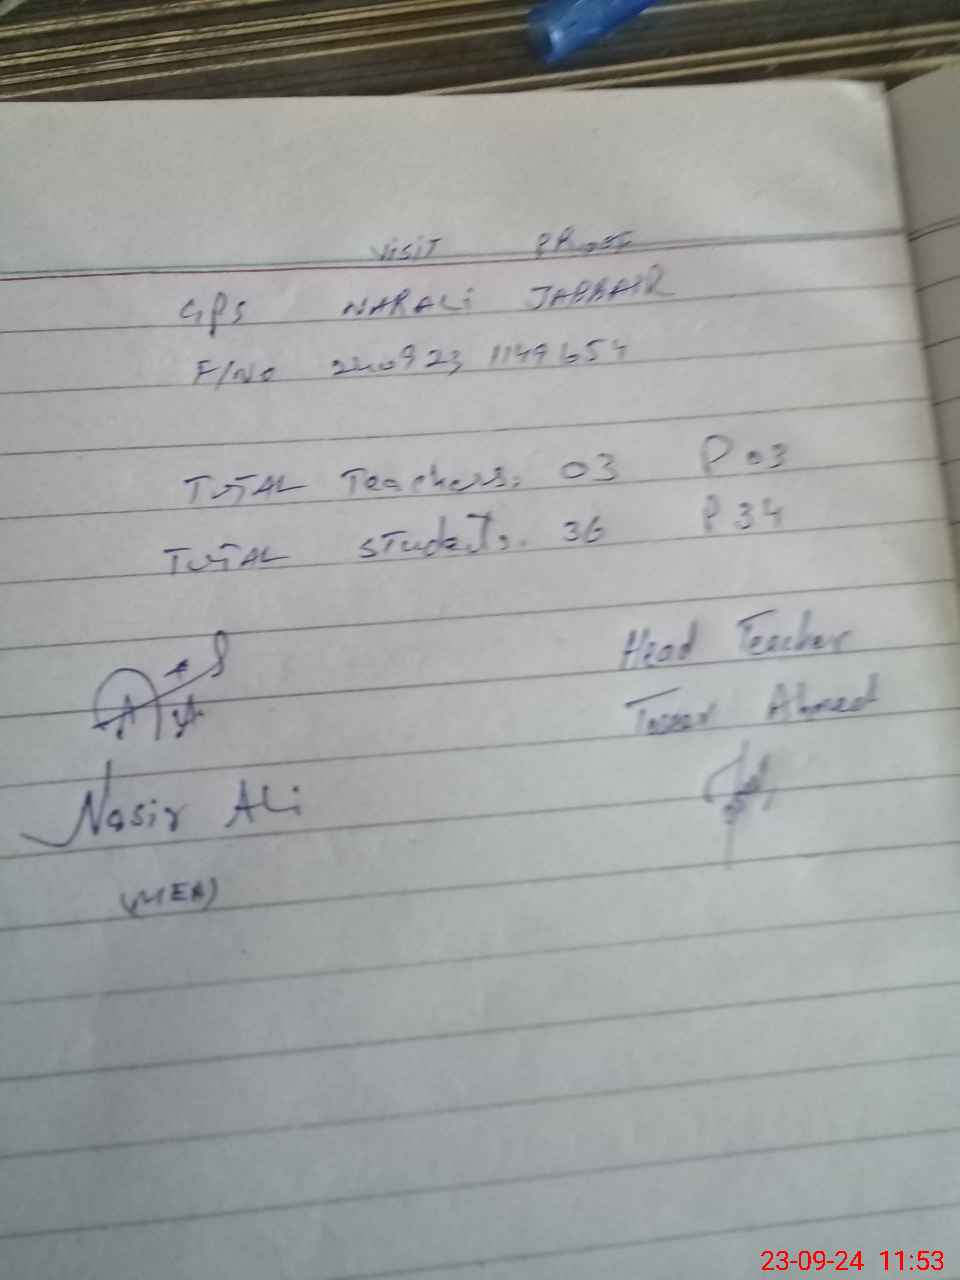 VISIT PROOF
GPS NARALI JABBAIR
F/No 240923 1149654
TOTAL Teachers. 03 P 03
TOTAL Students. 36 P 34
Head Teacher
Ahmed
Nasir Ali
(MEA)
23-09-24 11:53